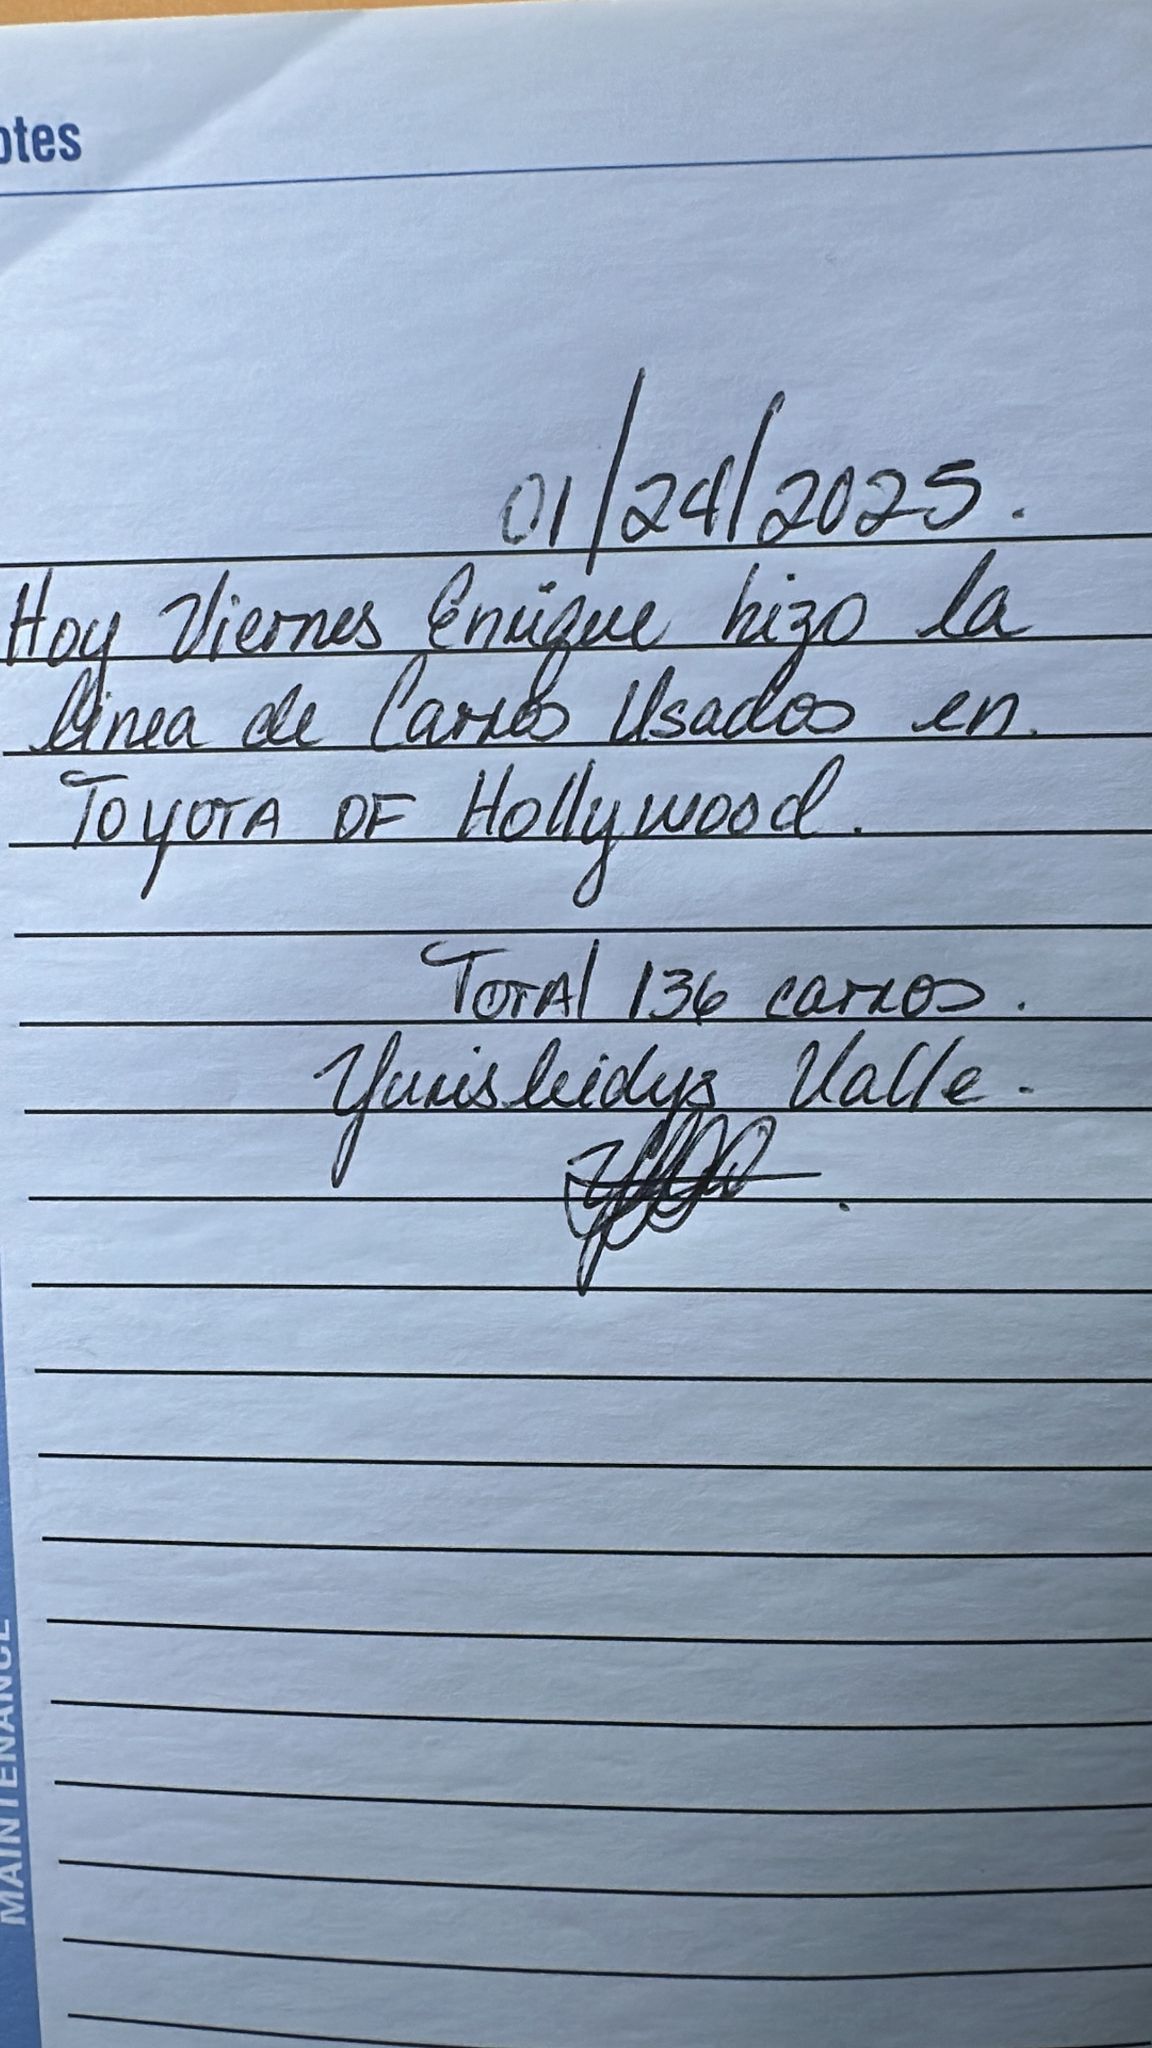 otes
01/24/2025.
Hoy Viernes Enrique hizo la
linea de Carros Usados en.
TOYOTA OF Hollywood.
TOTAl 136 carros.
Yurisleidys Valle.
MAINTENANCE